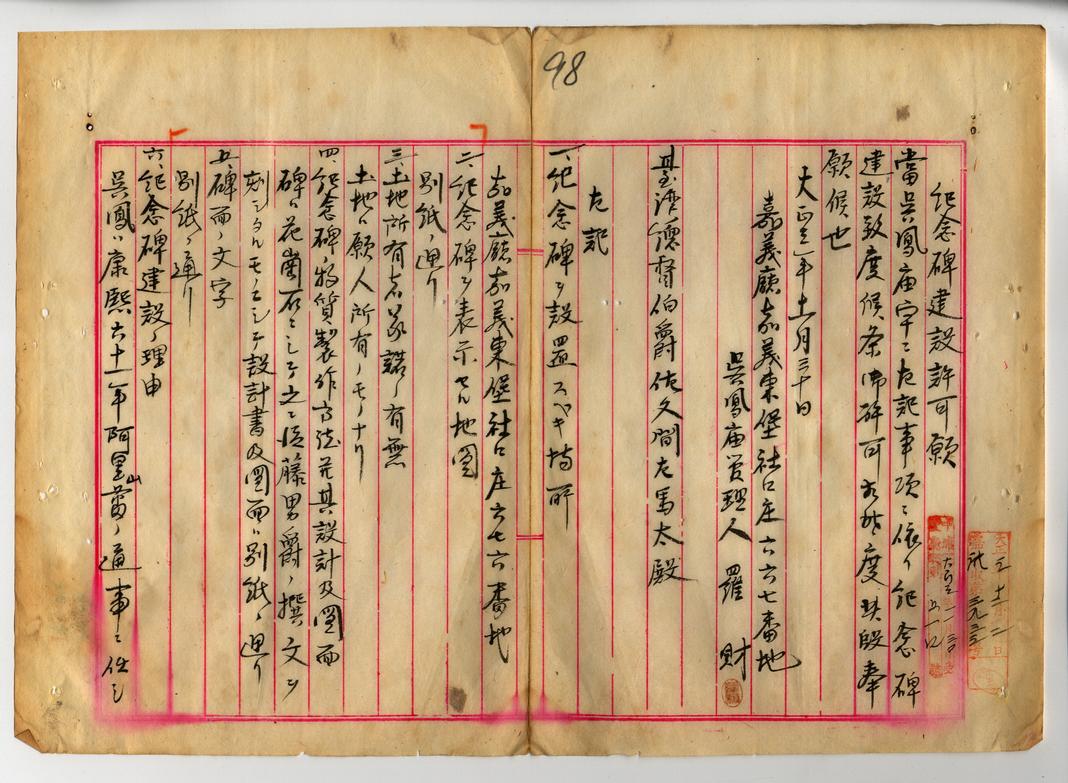 98
紀念碑建設許可願
當吳鳳廟宇ニ左記事項ニ依リ紀念碑
建設致度候条御許可相成度此段奉
願候也
大正三年十一月三十日
嘉義廳嘉義東堡社口庄六六七番地
吳鳳廟管理人 羅 財
臺灣總督伯爵佐久間左馬太殿
左記
一、紀念碑ヲ設置スベキ場所
嘉義廳嘉義東堡社口庄六七六番地
二、紀念碑ヲ表示セル地圖
別紙ノ通リ
三、土地所有者承諾ノ有無
土地ハ願人所有ノモノナリ
四、紀念碑ノ物質製作方法并其設計及圖面
碑ハ花崗石ニシテ之ニ後藤男爵ノ撰文ヲ
刻シタルモノニシテ設計書及圖面ハ別紙ノ通リ
五、碑面ノ文字
別紙ノ通リ
六、紀念碑建設ノ理由
吳鳳ハ康熙六十一年阿里山蕃ノ通事ニ任シ